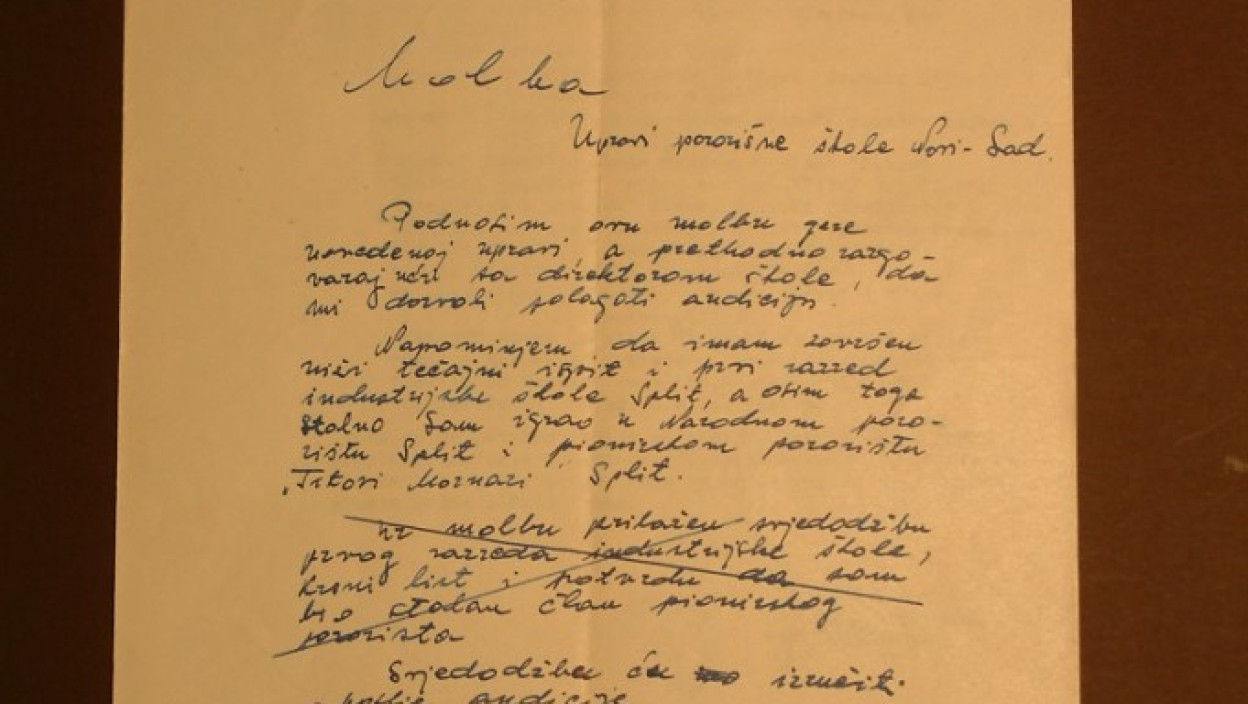 Molba
Upravi pozorišne škole Novi-Sad.
Podnosim ovu molbu gore
navedenoj upravi, a prethodno razgo-
varajući sa direktorom škole, da
mi dozvoli polagati audiciju.
Napominjem da imam završen
niži tečajni ispit i prvi razred
industrijske škole Split, a osim toga
stalno sam igrao u Narodnom pozo-
rištu Split i pionirskom pozorištu
„Titovi Mornari" Split.
Uz molbu prilažem svjedodžbu
prvog razreda industrijske škole,
krsni list i potvrdu da sam
bio stalan član pionirskog
pozorišta
Svjedodžbu ću izručit.
poslije audicije